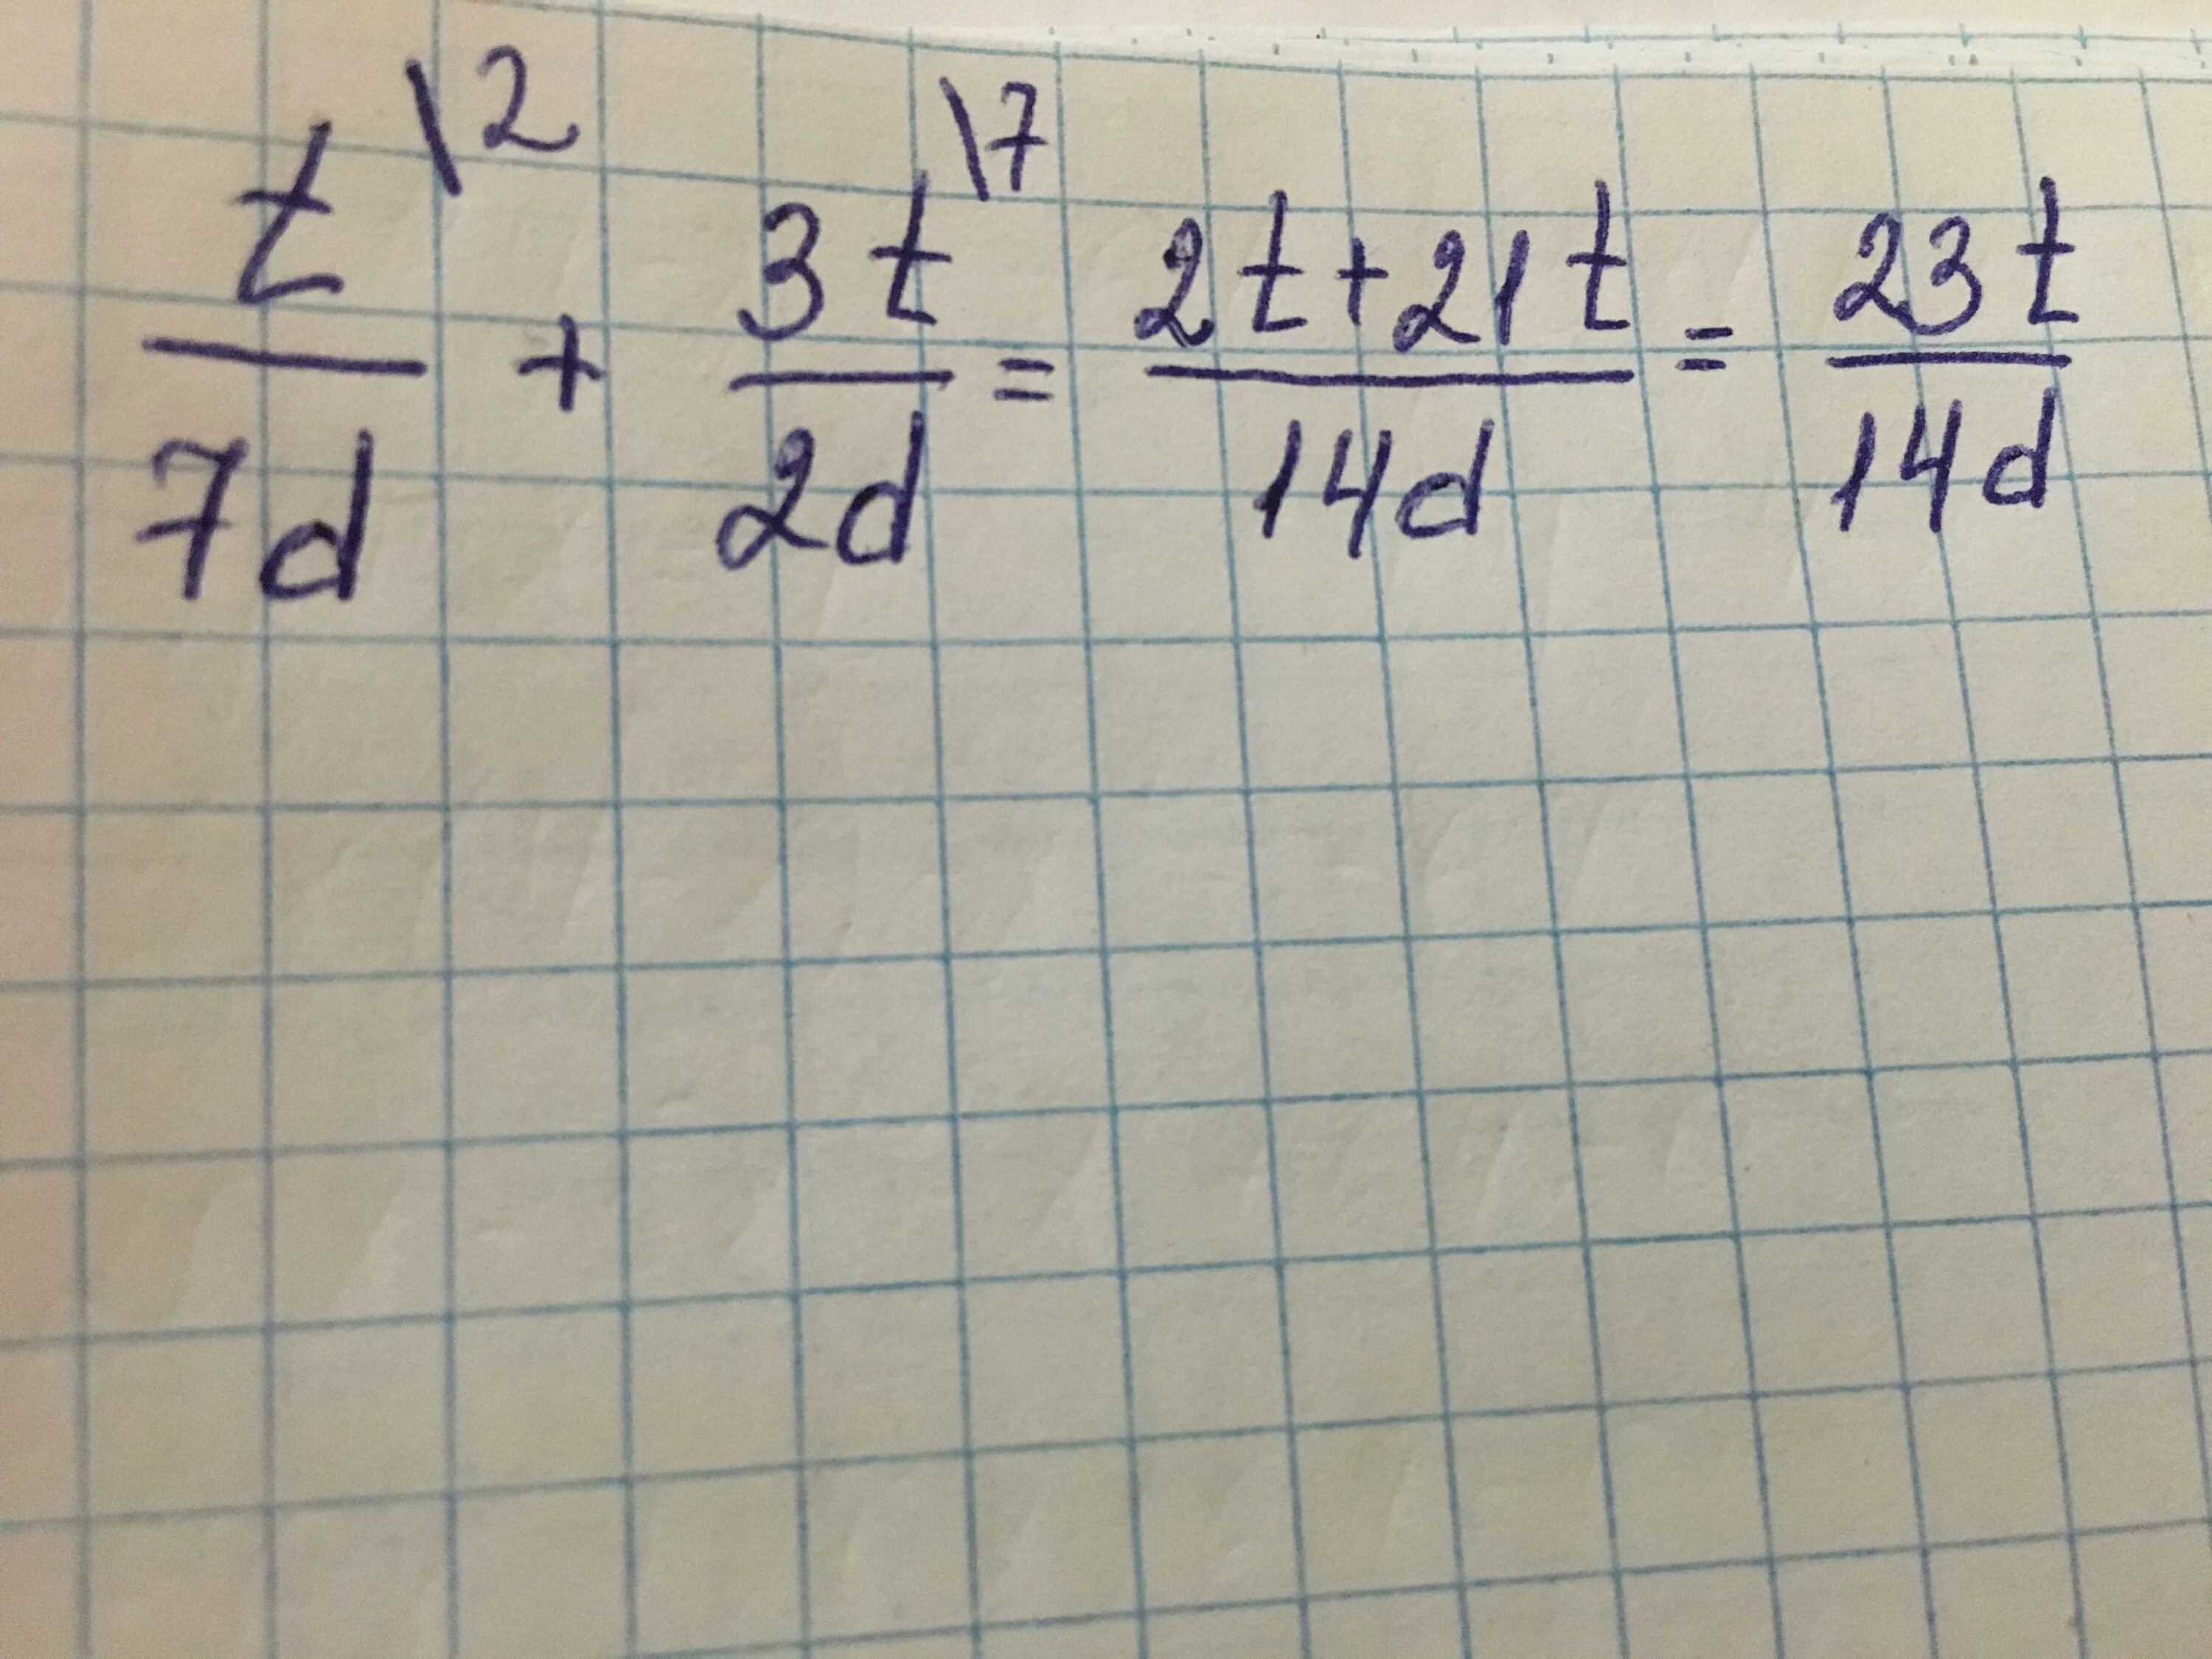 t\2/7d + 3t\7/2d = 2t+21t/14d = 23t/14d